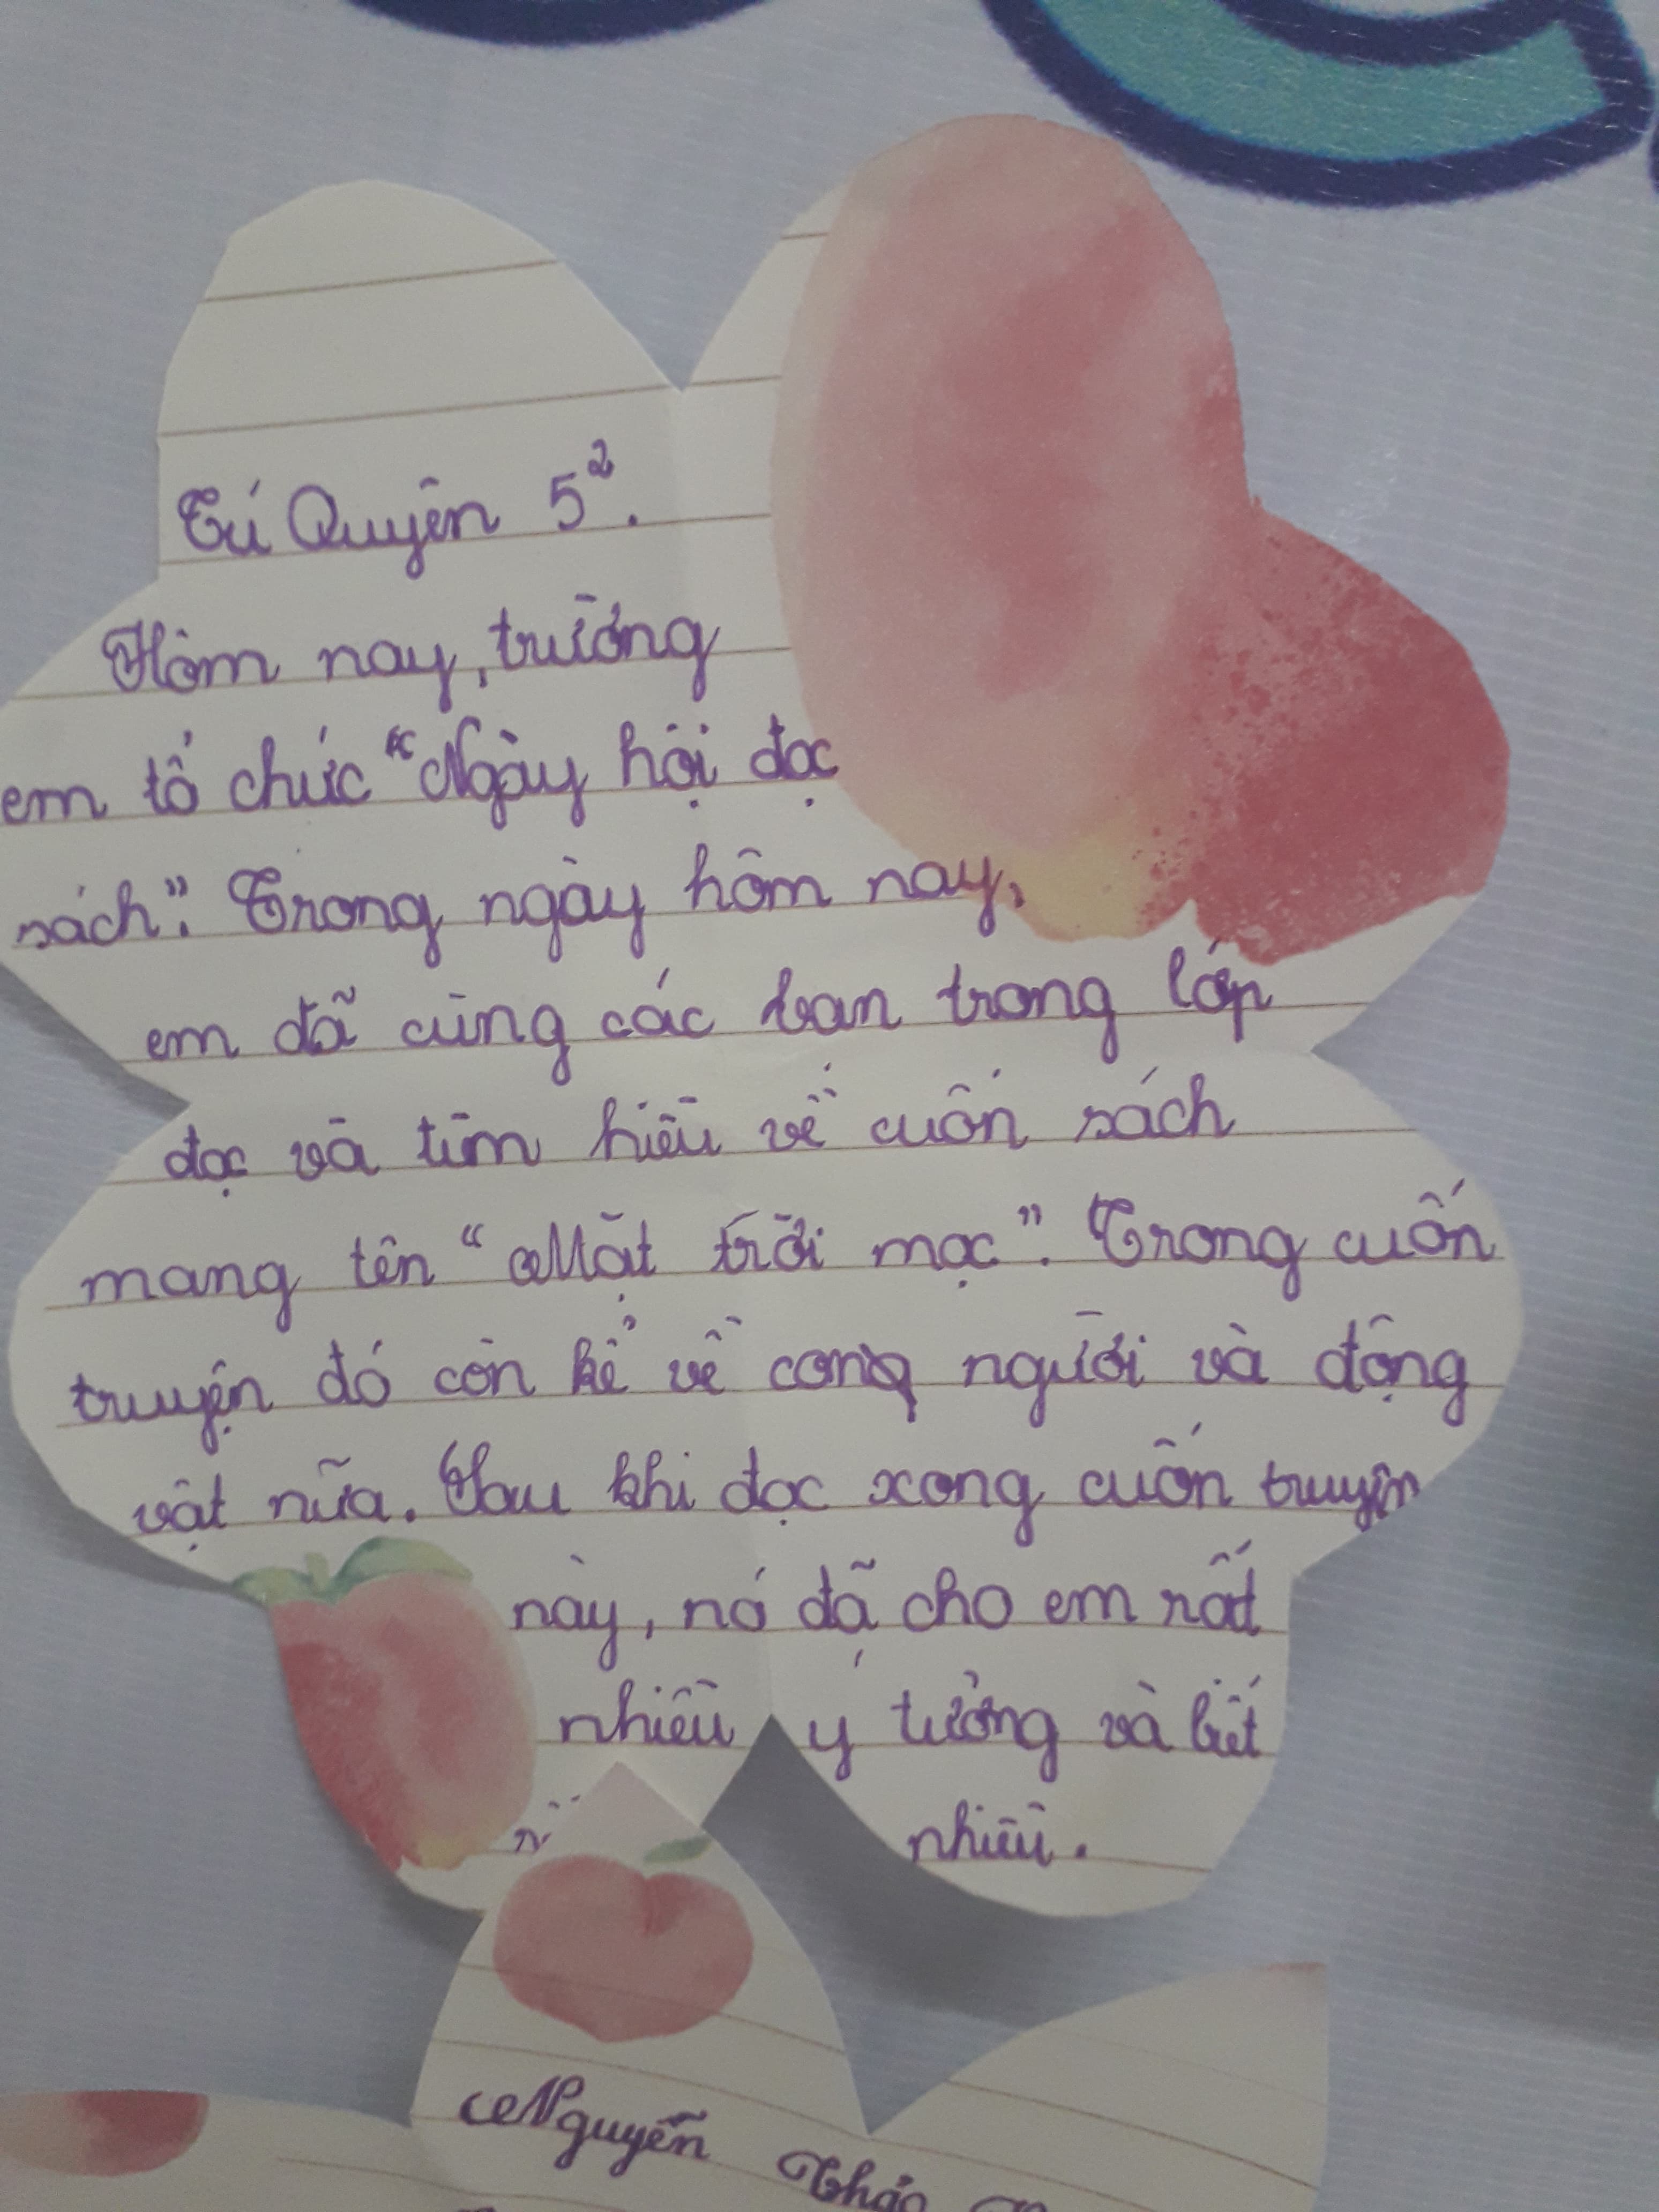 Tú Quyên 5².
Hôm nay, trường
em tổ chức "Ngày hội đọc
sách". Trong ngày hôm nay,
em đã cùng các ban trong lớp
đọc và tìm hiểu về cuốn sách
mang tên "Mặt trời mọc". Trong cuốn
truyện đó còn kể về cong người và động
vật nữa. Sau khi đọc xong cuốn truyện
này, nó đã cho em rất
nhiều ý tưởng và biết
nhiều.
Nguyễn Thảo